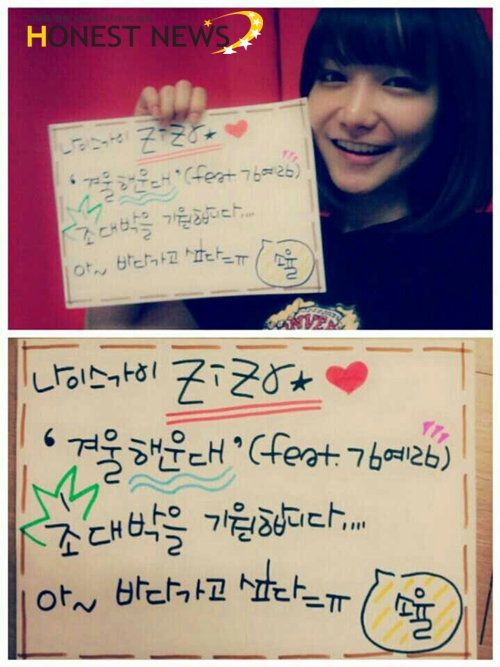 HONEST NEWS
나이스가이 ZiZO★
'겨울해운대'(feat. 김예림)
초대박을 기원합니다....
아~ 바다가고 싶다=ㅠ
소율
나이스가이 ZiZO★
'겨울해운대'(feat. 김예림)
초대박을 기원합니다....
아~ 바다가고 싶다=ㅠ
소율